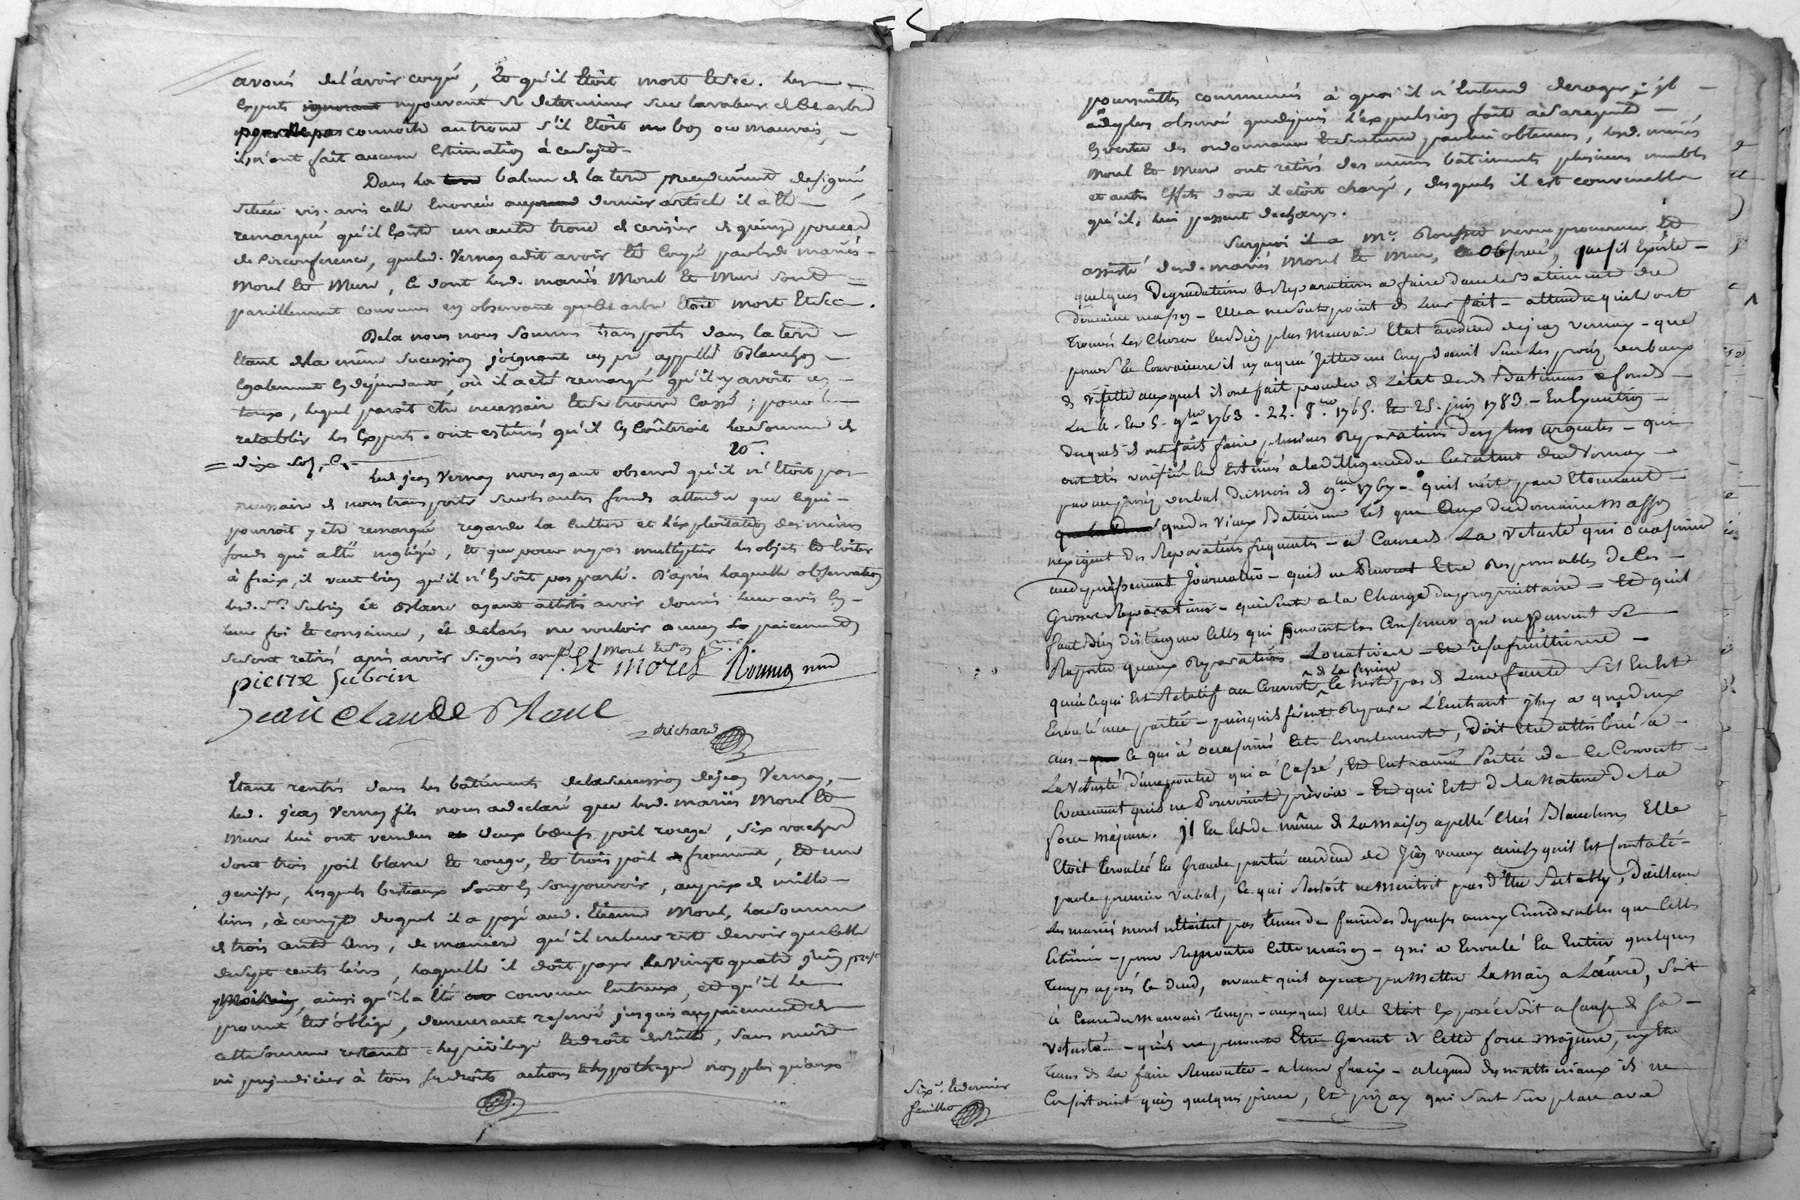 avoué de l'avoir coupé, et qu'il étoit mort et sec. Les
experts ne pouvant se determiner sur la valeur de cet arbre
connoitre au tronc s'il étoit bon ou mauvais,
ils n'ont fait aucune estimation à ce sujet
Dans la balme de la terre precedemment designée
vis-avis celle enoncée dernier article il a été
remarqué qu'il existe un autre tronc de cerisier de quinze pouces
de circonference, que led. Vernay a dit avoir été coupé par lesd. mariés
Morel et Mure, ce dont lesd. mariés Morel et Mure sont
pareillement convenus en observant que cet arbre étoit mort et sec.
De la nous nous sommes transportés dans la terre
étant de la même succession joignant un pré appellé Blanchon
également en dependant, où il a été remarqué qu'il y avoit un
lequel paroit etre necessaire et se trouve cassé ; pour le
retablir les experts ont estimés qu'il en couteroit la somme de
dix sols, cy 10 s.
Led. jean Vernay nous ayant observé qu'il n'étoit pas
necessaire de nous transporter sur les autres fonds attendu que ce qui
pourroit y etre remarqué regarde la culture et l'exploitation des mêmes
fonds qui a été negligée, et que pour ne pas multiplier les objets et eviter
à fraix, il veut bien qu'il n'en soit pas parlé. D'après laquelle observation
lesd. srs. Subrin et Blanc ayant attesté avoir donné leur avis en
leur foi et conscience, et declarés ne vouloir aucun paiement
se sont retirés après avoir signés
pierre Subrin Et morel
jean claude Blanc
Richard
Etant rentrés dans les bâtiments de la succession de jean Vernay,
led. jean Vernay fils nous a declaré que lesd. mariés Morel et
Mure lui ont vendus deux bœufs poil rouge, six vaches
dont trois poil blanc et rouge, et trois poil froment, et une
genisse, lesquels bestiaux sont en son pouvoir, au prix de mille
livres, à compte duquel il a payé aud. Etienne Morel, la somme
de trois cents livres, de maniere qu'il ne leur reste devoir que celle
de sept cents livres, laquelle il doit payer le vingt quatre juin
ainsi qu'il a été convenu entr'eux, et qu'il le
promet et s'oblige, demeurant reservé jusques au paiement de
cette somme restante le privilege et droit de suite, sans nuire
ni prejudicier à tous ses droits actions et hypotheque non plus qu'aux
poursuittes commencées à quoi il n'entend deroger ; il
a de plus observé que depuis l'expulsion faite à sa requête
en vertu des ordonnances et sentences par lui obtenues, lesd. mariés
Morel et Mure ont retirés des mêmes bâtiments plusieurs meubles
et autres effets dont il étoit chargé, desquels il est convenable
qu'ils lui passent decharge.
Surquoi Me. Rousset neveu procureur et
assisté desd. mariés Morel et Mure, a observé, que s'il existe
quelques Degradations et Reparations a faire dans les Batiments du
domaine masson Elle ne sont point de leur fait attendu qu'ils ont
trouvés les choses en bien plus mauvais Etat au deces de jean vernay que
pour s'en convaincre il n'y a qu'a jetter un coup d'oeuil sur les procès verbaux
de visitte auxquels ils ont fait proceder de l'état desd. Batiments et fonds
Le 4 et 5. 9bre 1763 - 22. 8bre 1765. et 25. juin 1783. En Execution
desquels ils ont fait faire plusieurs Reparations des plus urgentes qui
ont étés verifiées et Estimés a la diligence dud. Vernay
par un procès verbal du mois de 9bre 1767 qu'il n'est pas Etonnant
que des vieux Batiments tels que ceux du domaine Masson
n'exigent des Reparations frequentes à cause de La vetusté qui occasionne
un deperissement journallier qu'ils ne peuvent Etre Responsables de Ces
Grosses Reparations qui sont a la Charge du proprietaire et qu'il
faut bien distinguer celles qui peuvent les Concerner qui ne peuvent se
Rapporter qu'aux Reparations Locatives et usufruitieres
qu'a ce qui Est Relatif au Couvert de la cuisine ce n'est pas de leur faute s'il en Est
Ecroulé une partie puisqu'ils furent Reparé L'Entrant il n'y a que deux
ans ce qui a occasionné cet ecroulement, doit etre attribué a
La vetusté d'une poutre qui a Cassé, Et entrainé partie de ce Couvert
Evenement qu'ils ne pouvoient prévoir Et qui Est de la Nature de La
force majeure. il en est de même de La maison apellé chés Blanchon Elle
Etoit Ecroulée en Grande partie au deces de Jean vernay ainsy qu'il est constaté
par le premier verbal, ce qui Restoit ne meritoit pas d'etre Retably, d'ailleurs
Les mariés morel n'etoient pas tenus de faire des depenses aussy Considerables que celles
pour Remonter cette maison qui a Ecroulé En Entier quelques
temps après le deces, avant qu'ils ayent pu mettre La main a L'œuvre, soit
à Cause du mauvais temps auxquel Elle Etoit Exposée soit a cause de sa
vetusté qu'ils ne peuvent Etre Garent de Cette force majeure, ny Etre
tenus de La faire Remonter a leur fraix a l'egard des matteriaux ils ne
Consistoient qu'en quelques pierre, Et pizay qui sont sur place avec
Sixe. et dernier
feuillet